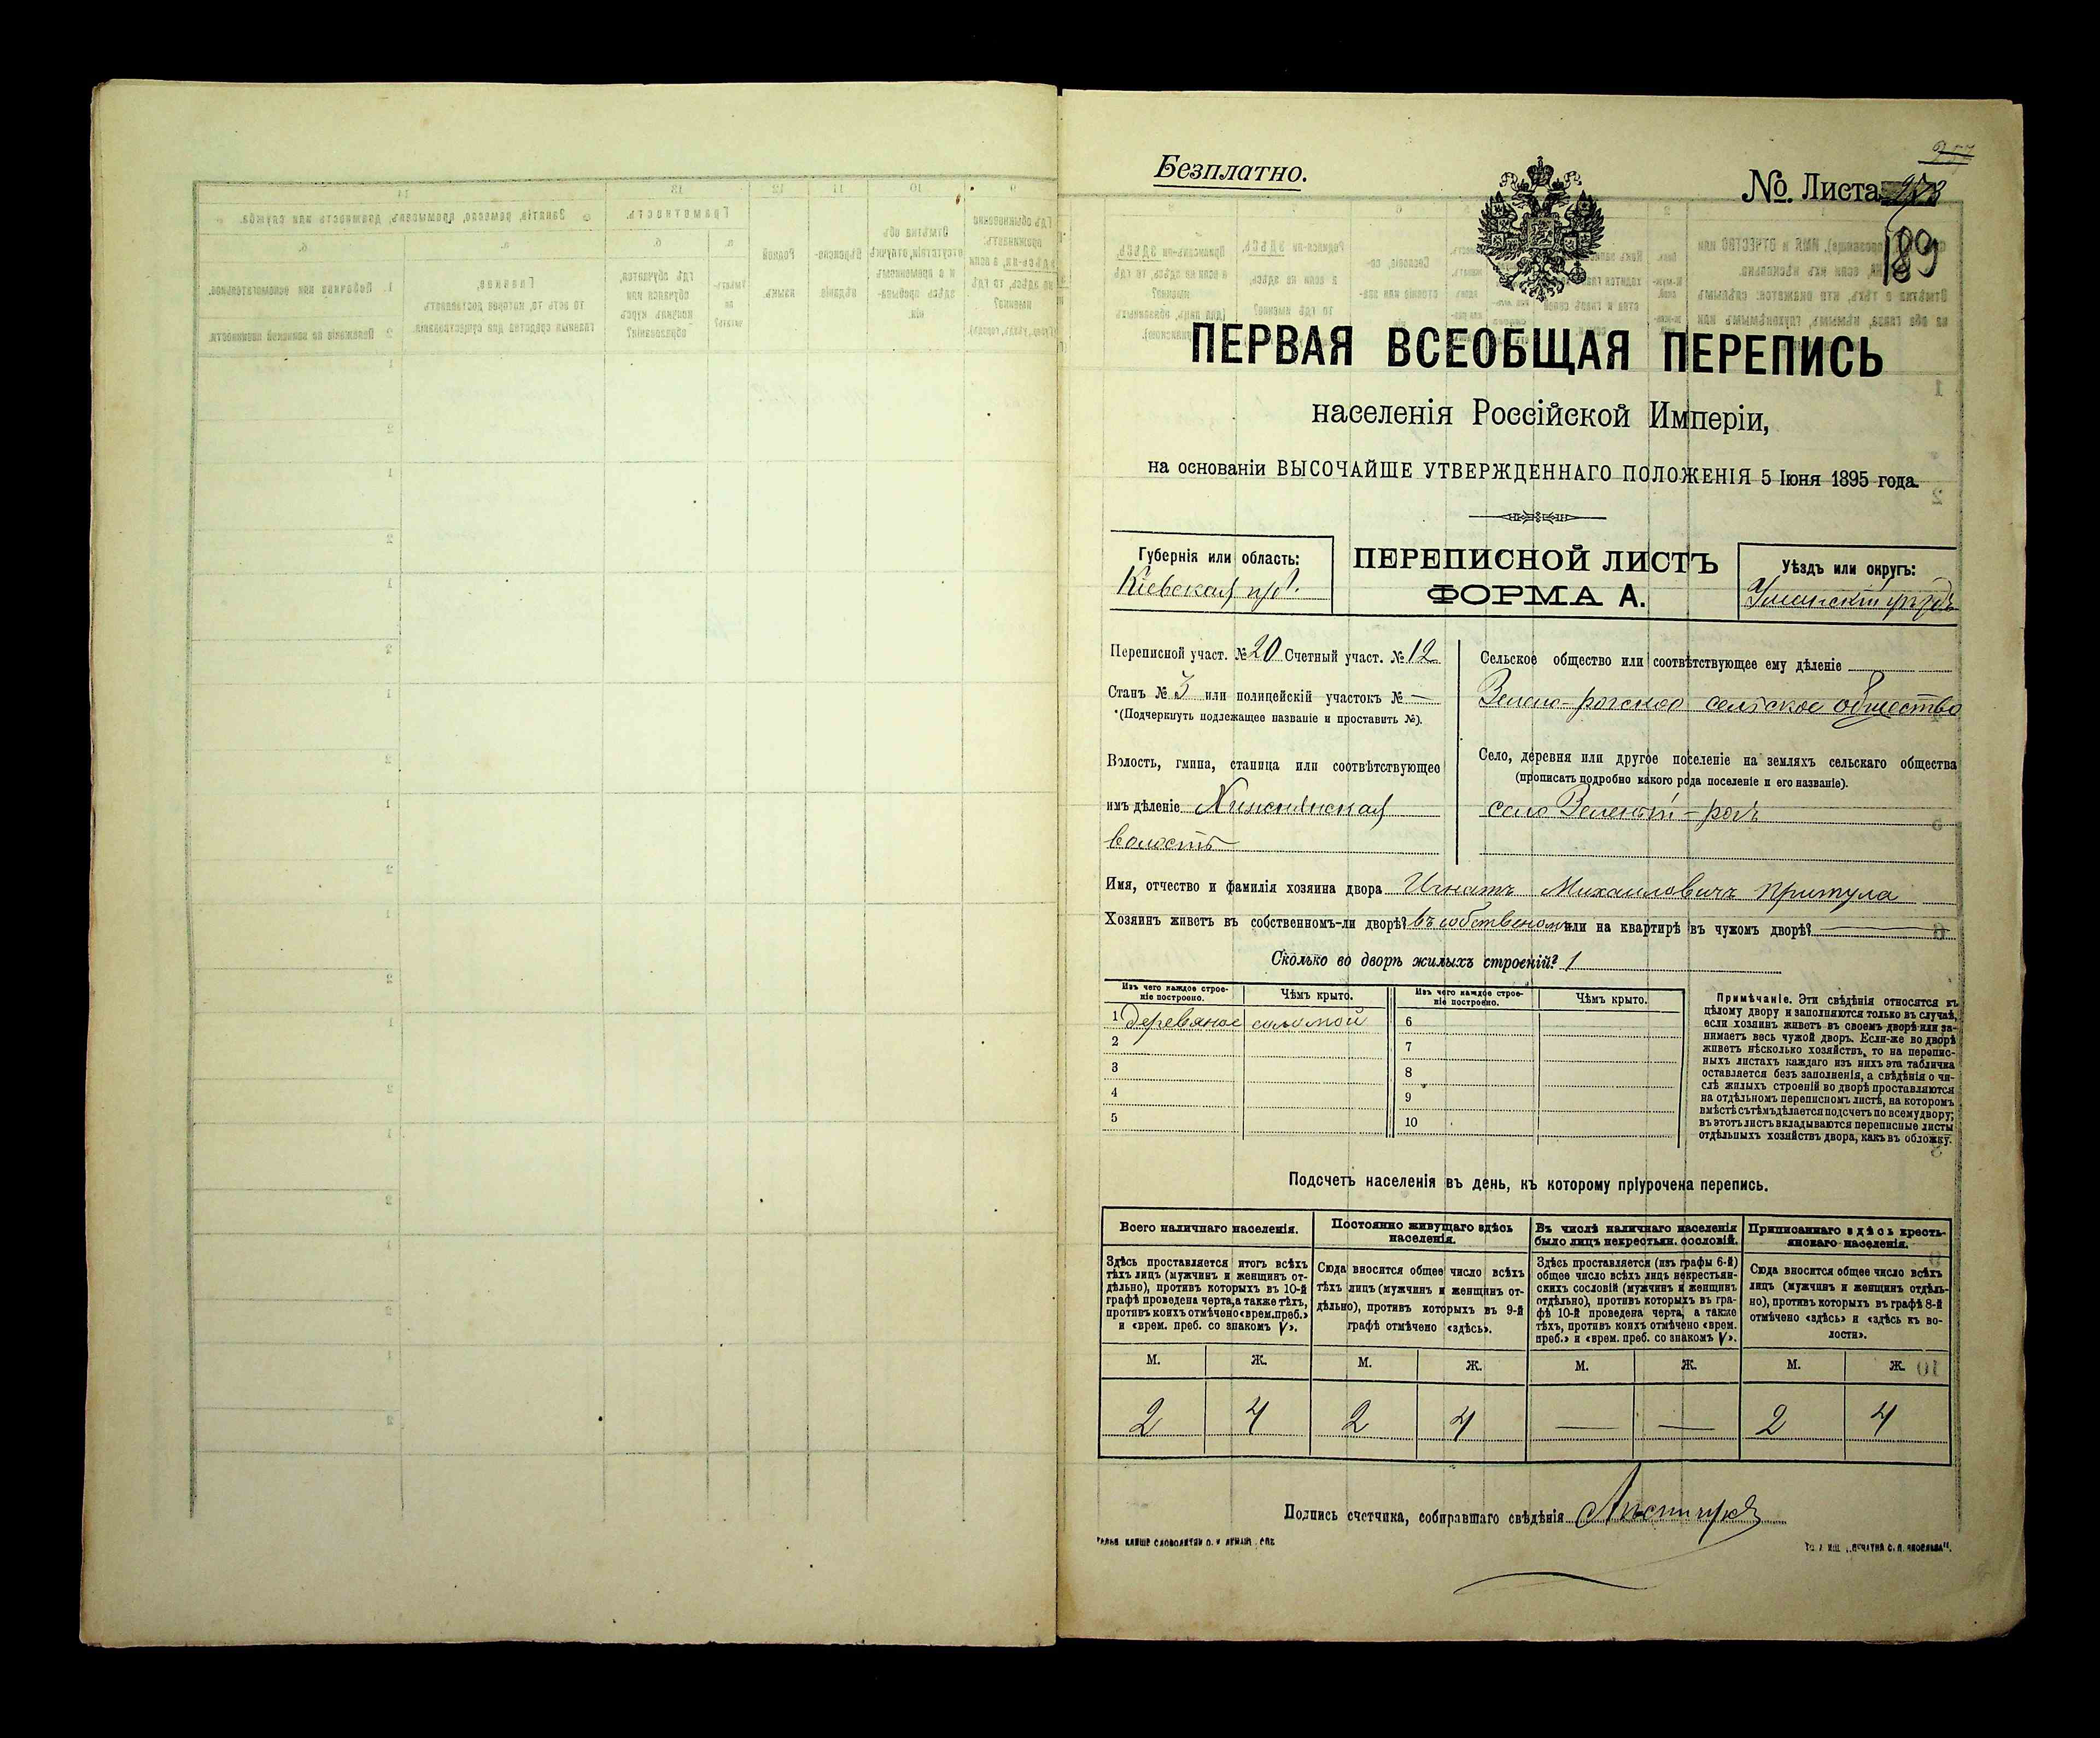 Безплатно.
257
№. Листа 273
189
ПЕРВАЯ ВСЕОБЩАЯ ПЕРЕПИСЬ
населенія Россійской Имперіи,
на основаніи ВЫСОЧАЙШЕ УТВЕРЖДЕННАГО ПОЛОЖЕНІЯ 5 Іюня 1895 года.
Губернія или область:
Кіевская губ.
ПЕРЕПИСНОЙ ЛИСТЪ
ФОРМА А.
Уѣздъ или округъ:
Уманскій уѣздъ
Переписной участ. № 20 Счетный участ. № 12
Станъ № 3 или полицейскій участокъ № —
*(Подчеркнуть подлежащее названіе и проставить №).
Волость, гмина, станица или соотвѣтствующее
имъ дѣленіе
волость
Сельское общество или соотвѣтствующее ему дѣленіе
Зелено-рогское сельское общество
Село, деревня или другое поселеніе на земляхъ сельскаго общества
(прописать подробно какого рода поселеніе и его названіе).
село Зеленый-рогъ
Имя, отчество и фамилія хозяина двора Игнатъ Михаиловичъ Притула
Хозяинъ живетъ въ собственномъ-ли дворѣ? въ собственомъ или на квартирѣ въ чужомъ дворѣ? —
Сколько во дворѣ жилыхъ строеній? 1
Изъ чего каждое строе-
ніе построено.
Чѣмъ крыто.
Изъ чего каждое строе-
ніе построено.
Чѣмъ крыто.
1 деревяное соломой 6
2 7
3 8
4 9
5 10
Примѣчаніе. Эти свѣдѣнія относятся къ
цѣлому двору и заполняются только въ случаѣ,
если хозяинъ живетъ въ своемъ дворѣ или за-
нимаетъ весь чужой дворъ. Если-же во дворѣ
живетъ нѣсколько хозяйствъ, то на перепис-
ныхъ листахъ каждаго изъ нихъ эта табличка
оставляется безъ заполненія, а свѣдѣнія о чи-
слѣ жилыхъ строеній во дворѣ проставляются
на отдѣльномъ переписномъ листѣ, на которомъ
вмѣстѣ съ тѣмъ дѣлается подсчетъ по всему двору;
въ этотъ листъ вкладываются переписные листы
отдѣльныхъ хозяйствъ двора, какъ въ обложку.
Подсчетъ населенія въ день, къ которому пріурочена перепись.
Всего наличнаго населенія.
Здѣсь проставляется итогъ всѣхъ
тѣхъ лицъ (мужчинъ и женщинъ от-
дѣльно), противъ которыхъ въ 10-й
графѣ проведена черта, а также тѣхъ,
противъ коихъ отмѣчено «врем. преб.»
и «врем. преб. со знакомъ V».
Постоянно живущаго здѣсь
населенія.
Сюда вносится общее число всѣхъ
тѣхъ лицъ (мужчинъ и женщинъ от-
дѣльно), противъ которыхъ въ 9-й
графѣ отмѣчено «здѣсь».
Въ числѣ наличнаго населенія
было лицъ некрестьян. сословій.
Здѣсь проставляется (изъ графы 6-й)
общее число всѣхъ лицъ некрестьян-
скихъ сословій (мужчинъ и женщинъ
отдѣльно), противъ которыхъ въ гра-
фѣ 10-й проведена черта, а также
тѣхъ, противъ коихъ отмѣчено «врем.
преб.» и «врем. преб. со знакомъ V».
Приписаннаго здѣсь кресть-
янскаго населенія.
Сюда вносится общее число всѣхъ
лицъ (мужчинъ и женщинъ отдѣль-
но), противъ которыхъ въ графѣ 8-й
отмѣчено «здѣсь» и «здѣсь къ во-
лости».
М. Ж. М. Ж. М. Ж. М. Ж.
2 4 2 4 — — 2 4
Подпись счетчика, собиравшаго свѣдѣнія